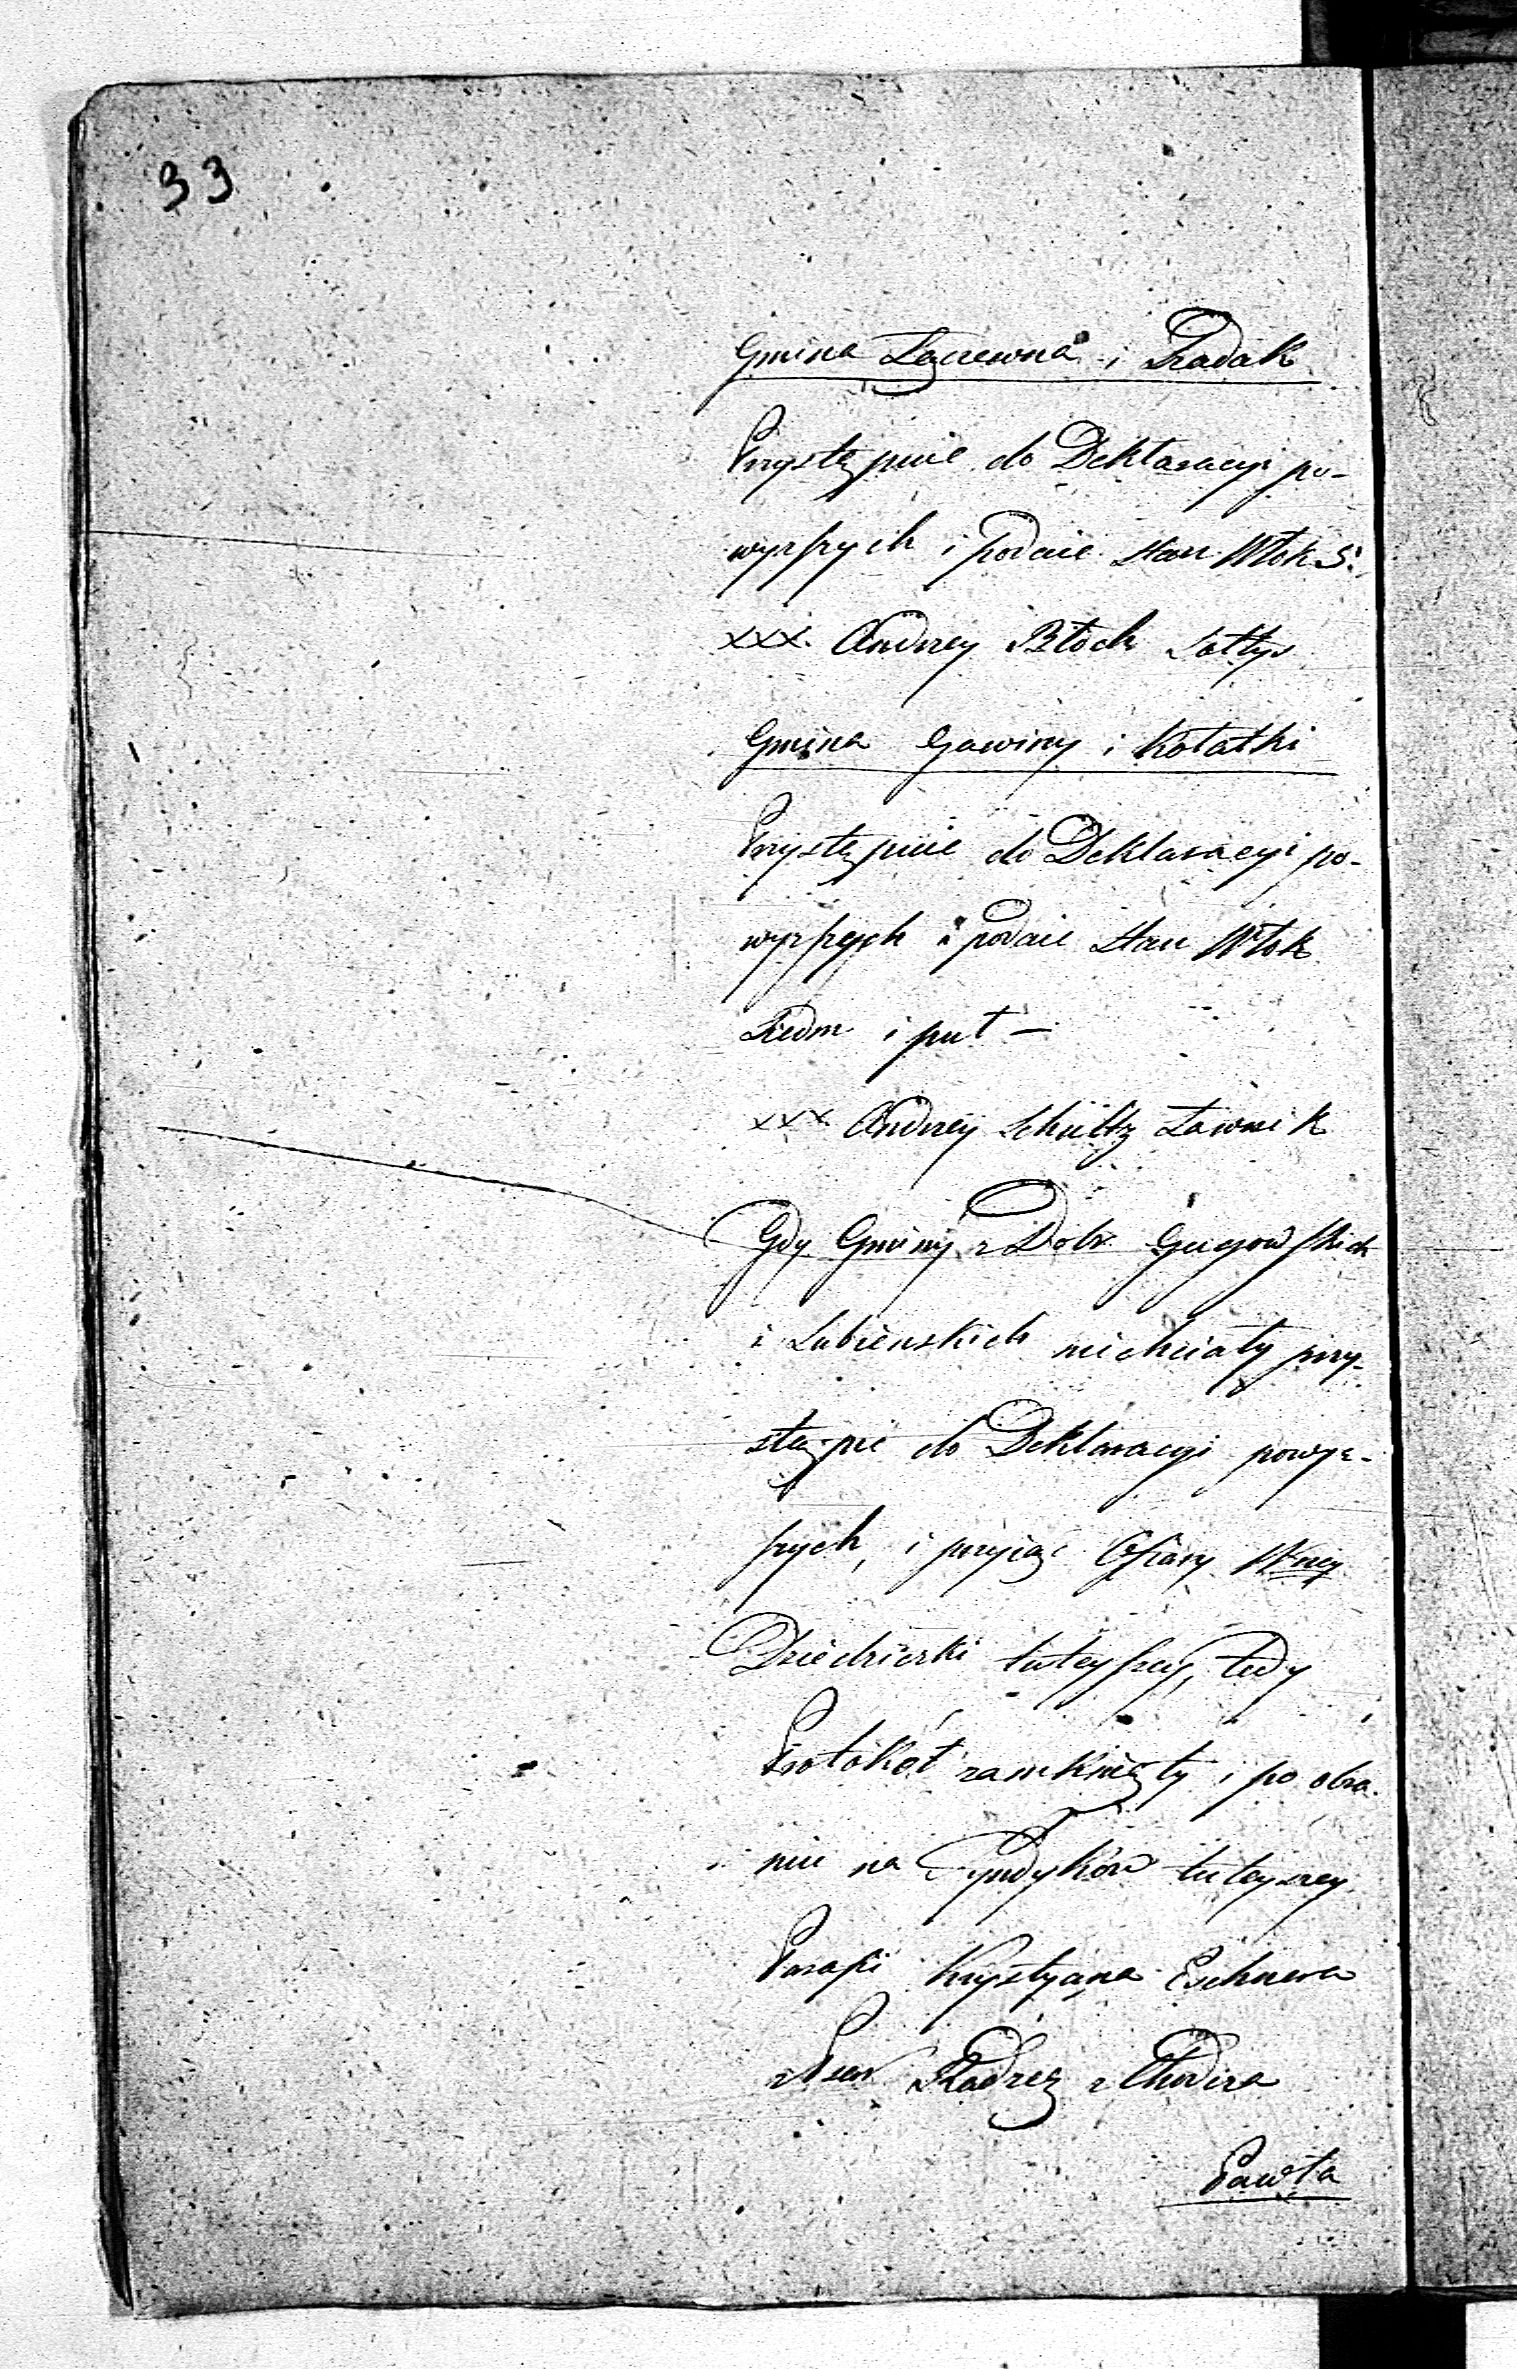 33
Gmina Zacrewna i Sadak
Przystępuie do Deklaracyi po-
wyższych i podaie stan Włok 5.
xxx Andrzey Błoch Sołtys
Gmina Gawiny i Kołatki
Przystępuie do Deklaracyi po-
wyższych i podaie stan Włok
Siedm i puł —
xxx Andrzey Schültz Ławnik
Gdy Gminy z Dobr
i Lubieńskich niechciały przy-
stąpić do Deklaracyi powyż-
szych, i przyiąć Ofiary Wney
Dziedziczki tuteyszey, tedy
Protokół zamknięty i po obra-
niu na Syndyków tuteyszey
Parafii Krystyana Eschnera
z
Pawła